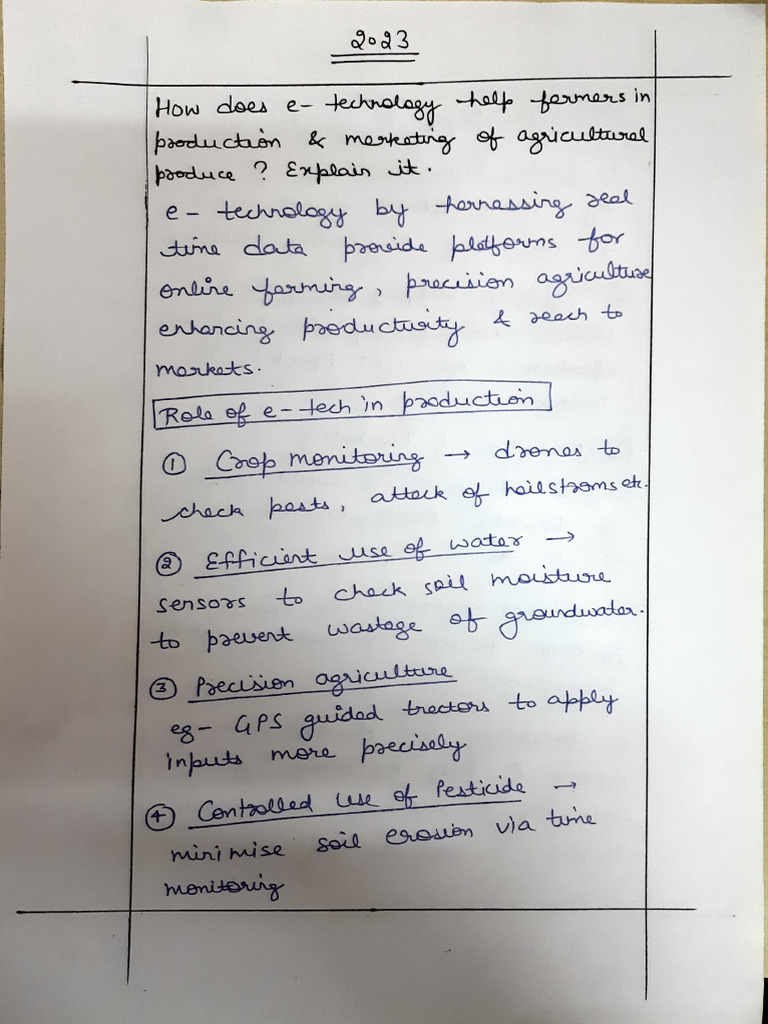 2023
How does e- technology help farmers in
production & marketing of agricultural
produce ? Explain it.
e- technology by harnessing real
time data provide platforms for
online farming, precision agriculture
enhancing productivity & reach to
markets.
Role of e-tech in production
① Crop monitoring → drones to
check pests, attack of hailstroms etc.
② Efficient use of water →
sensors to check soil moisture
to prevent wastage of groundwater.
③ Precision agriculture
eg- GPS guided trectors to apply
inputs more precisely
④ Controlled Use of Pesticide →
minimise soil erosion via time
monitoring